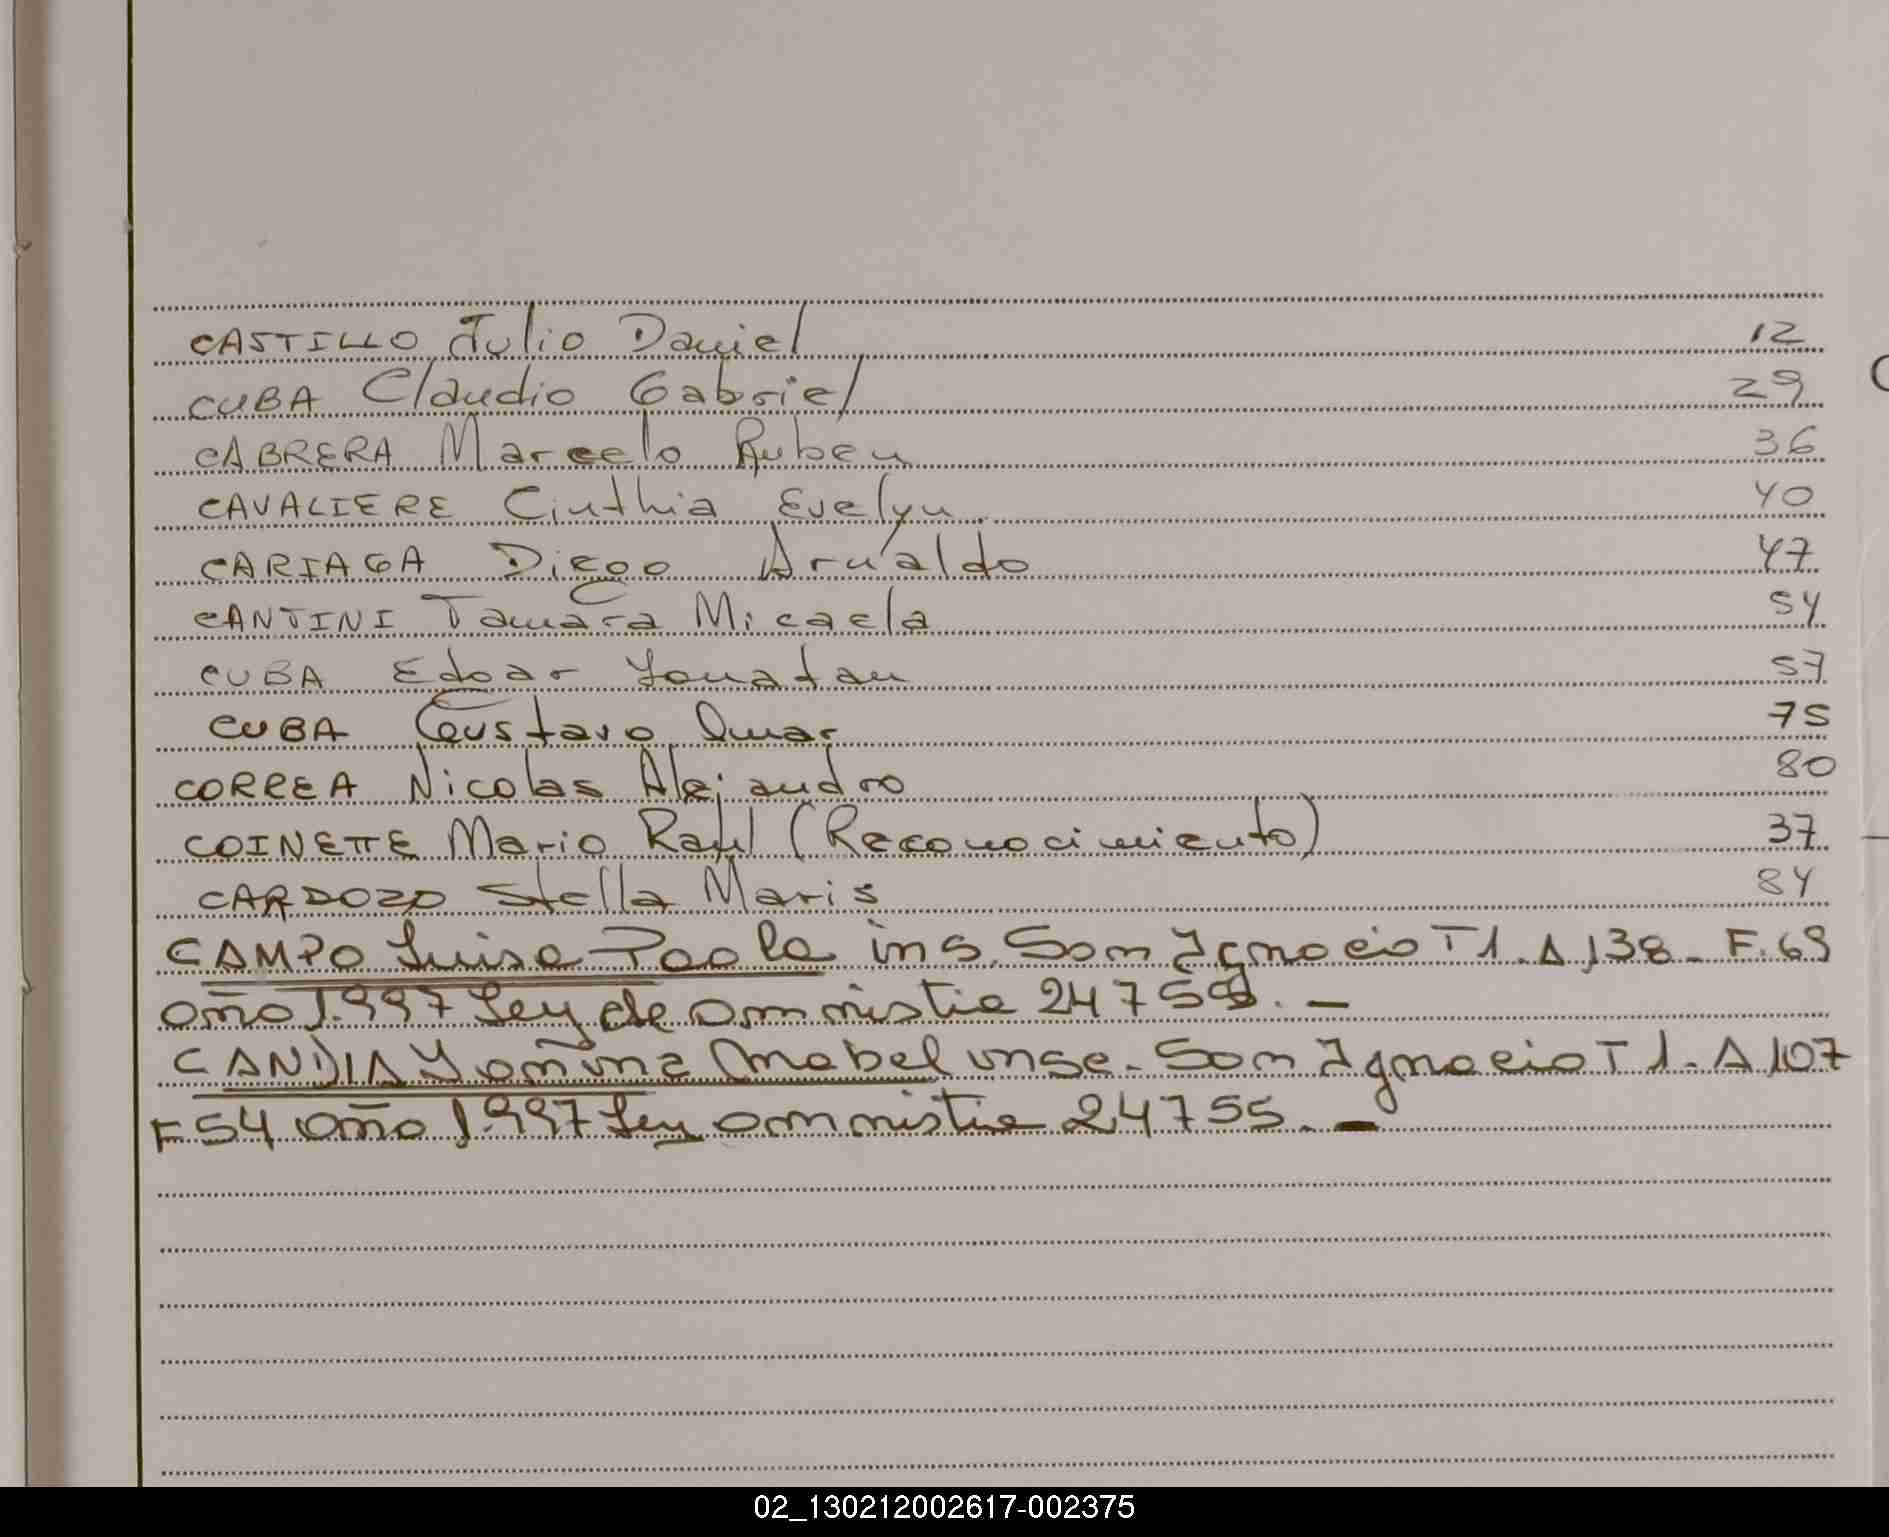 CASTILLO Julio Daniel 12
CUBA Claudio Gabriel 29
CABRERA Marcelo Ruben 36
CAVALIERE Cinthia Evelyn. 40
CARIAGA Diego Arnaldo 47
CANTINI Tamara Micaela 54
CUBA Edgar Yonatan 57
CUBA Gustavo Omar 75
CORREA Nicolas Alejandro 80
COINETTE Mario Raul (Reconocimiento) 37
CARDOZO Stella Maris 84
CAMPO Luisa Paola ins. San Ignacio T1. A 138 - F. 69
año 1.997 Ley de amnistia 24755. -
CANDIA Yanina Mabel insc. San Ignacio T 1. A 107
F 54 año 1.997 Ley amnistia 24755. -
02_130212002617-002375